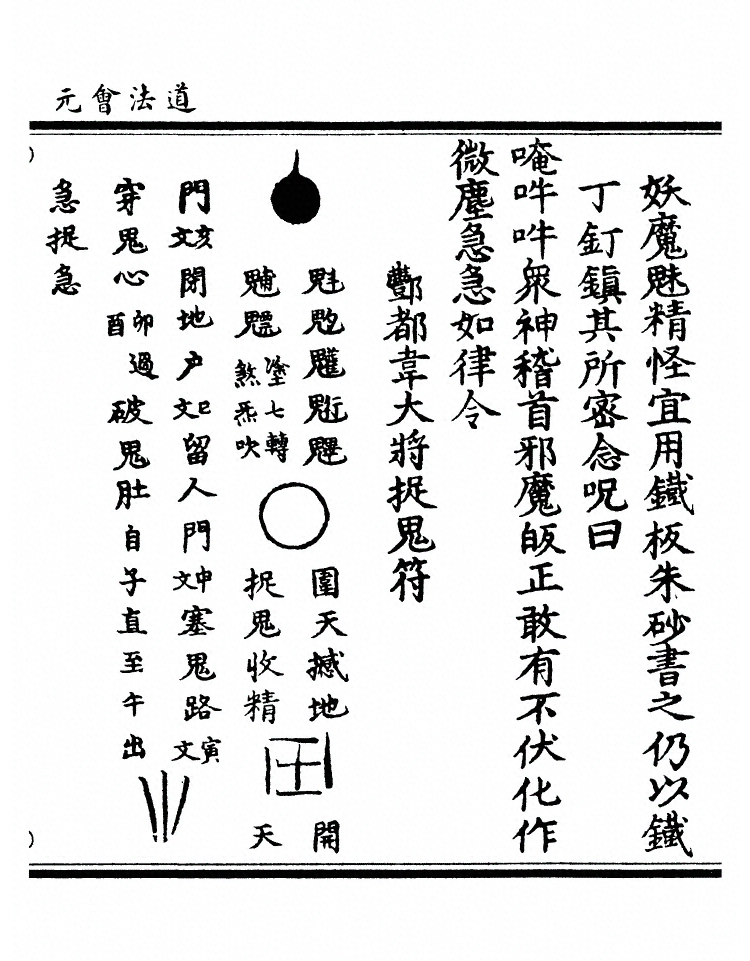 道法會元
妖魔魅精怪宜用鐵板朱砂書之仍以鐵
丁釘鎮其所密念呪曰
唵吽吽衆神稽首邪魔皈正敢有不伏化作
微塵急急如律令
酆都韋大將捉鬼符
魁魓䰢魒魓
圍天撼地
開
魖魒
塗七轉
煞炁吹
捉鬼收精
天
門
亥文
閉地戶
巳文
留人門
申文
塞鬼路
寅文
穿鬼心
卯酉
過破鬼肚自子直至午出
急捉急